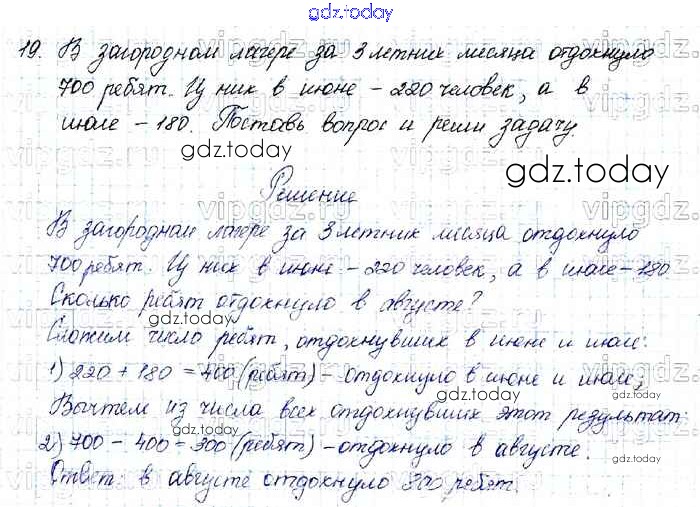 gdz.today
19. В загородном лагере за 3 летних месяца отдохнуло
700 ребят. Из них в июне - 220 человек, а в
июле - 180. Поставь вопрос и реши задачу
gdz.today
gdz.today
Решение
В загородном лагере за 3 летних месяца отдохнуло
700 ребят. Из них в июне - 220 человек, а в июле - 180
gdz.today
Сколько ребят отдохнуло в августе?
gdz.today
Сложим число ребят, отдохнувших в июне и июле:
1) 220 + 180 = 400 (ребят) - отдохнуло в июне и июле;
gdz.today
gdz.today
Вычтем из числа всех отдохнувших этот результат
gdz.today
2) 700 - 400 = 300 (ребят) - отдохнуло в августе.
gdz.today
Ответ: в августе отдохнуло 300 ребят.
gdz.today